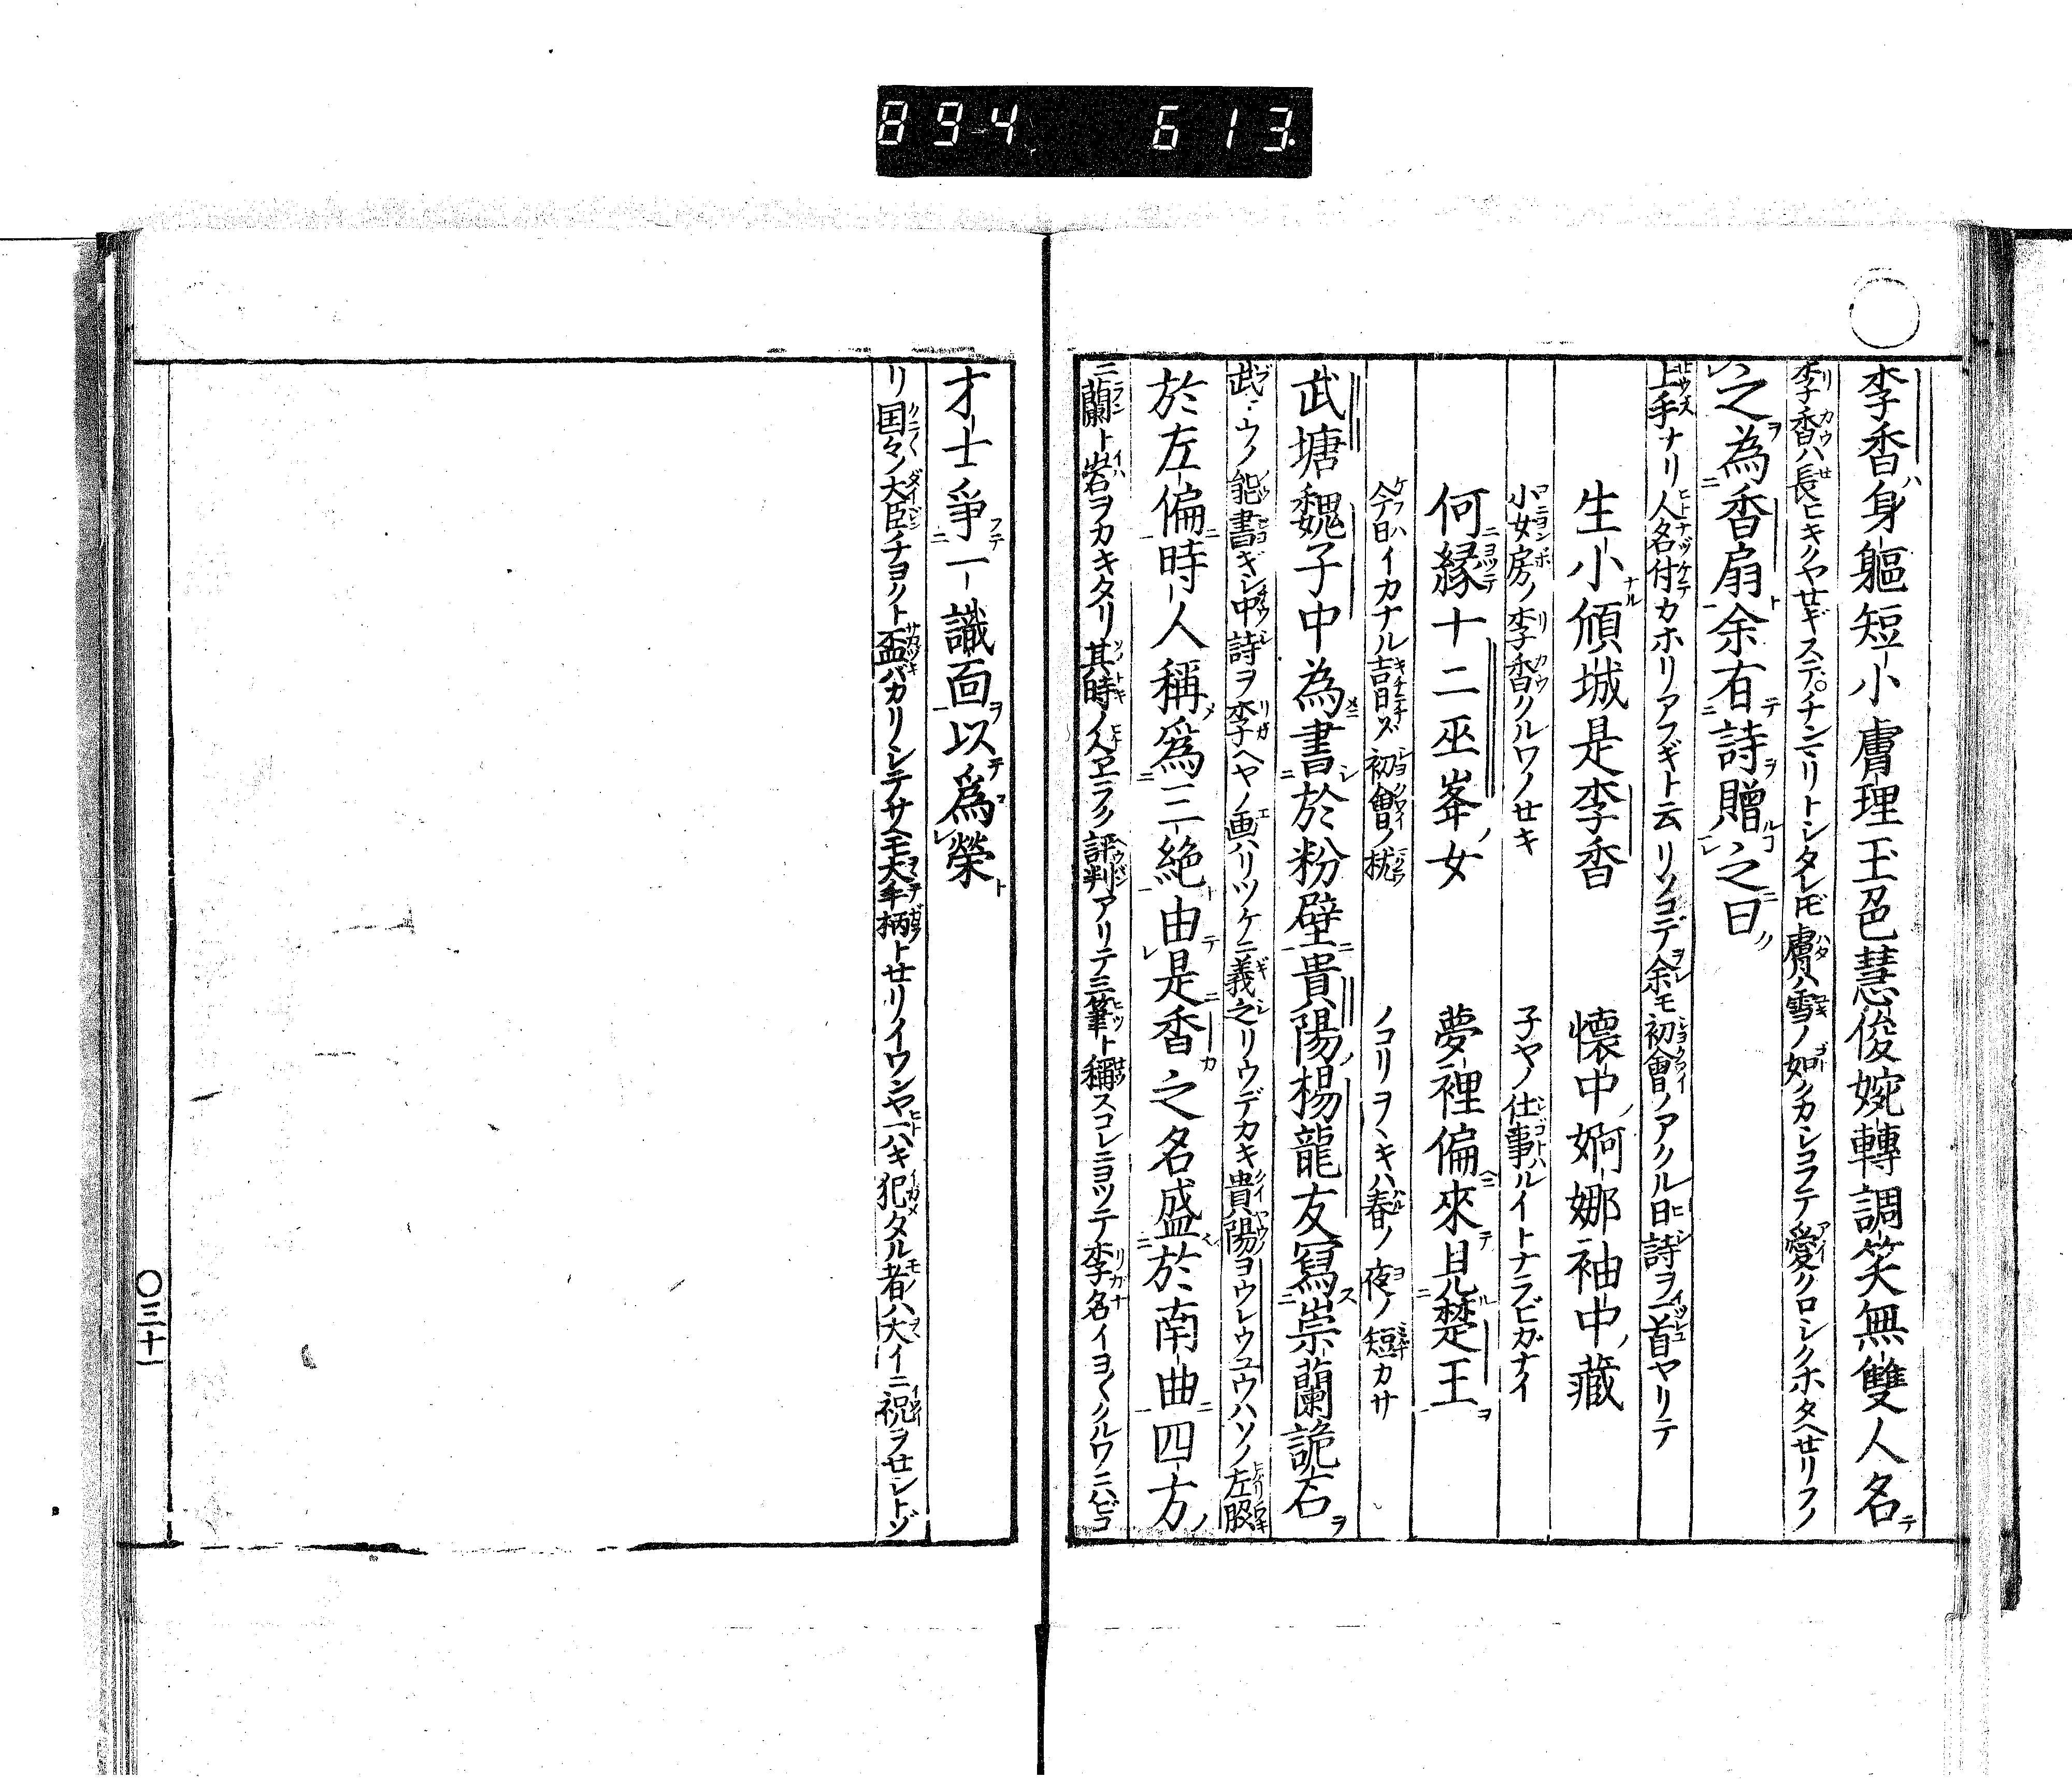 894 613
李香身軀短小膚理玉色慧俊婉轉調笑無雙人名
李香ハ長ヒキクヤセギスデチンマリトシタレ𪜈膚ハ雪ノ如クカシコフテ愛クロシクホタヘセリフノ
之為香扇余有詩贈之曰
上手ナリ人名付カホリアフギト云リソコデ余モ初會ノアクル日詩ヲ一首ヤリテ
生小傾城是李香 懐中婀娜袖中藏
小女房ノ李香クルワノセキ 子ヤノ仕事ハルイトナラビガナイ
何縁十二巫峯女 夢裡偏來見楚王
今日イカナル吉日ゾ初會ノ枕 ノコリヲヽキハ春ノ夜ノ短カサ
武塘魏子中為書於粉壁貴陽楊龍友寫崇蘭詭石
能書ギレ中詩ヲ李ヘヤノ画ハリツケニ義之リウデカキ貴陽ヨウレウユウハソノ左脇
於左偏時人稱爲三絶由是香之名盛於南曲四方
ニ蘭ト岩ヲカキタリ其時ノ人ヱラク評判アリテ三筆ト稱スコレニヨツテ李名イヨ〱クルワニハビコ
才士爭一識面以爲榮
リ国々ノ大臣チヨクト盃バカリシテサヘモ大手柄トセリイワンヤ一ハキ犯タル者ハ大イニ祝ヲセシトゾ
〇三十一